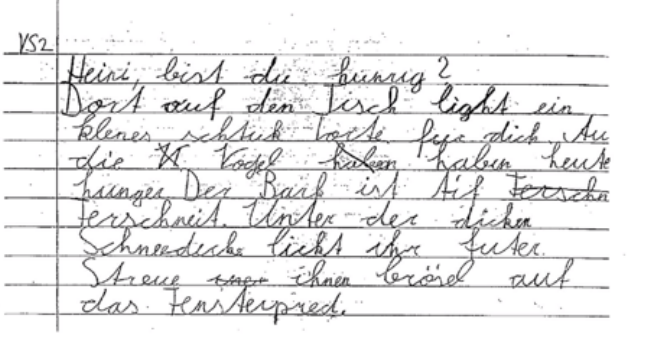 VS2
Heini, bist du hunrig?
Dort auf den Tisch light ein
klenes schtuk torte für dich Au
die Vogel haben haben heute
hunger Der Bark ist tif Ferschn
ferschneit. Unter der dicken
Schneedecke lickt ihr futer.
Streue ihnen brösel auf
das Fensterpred.